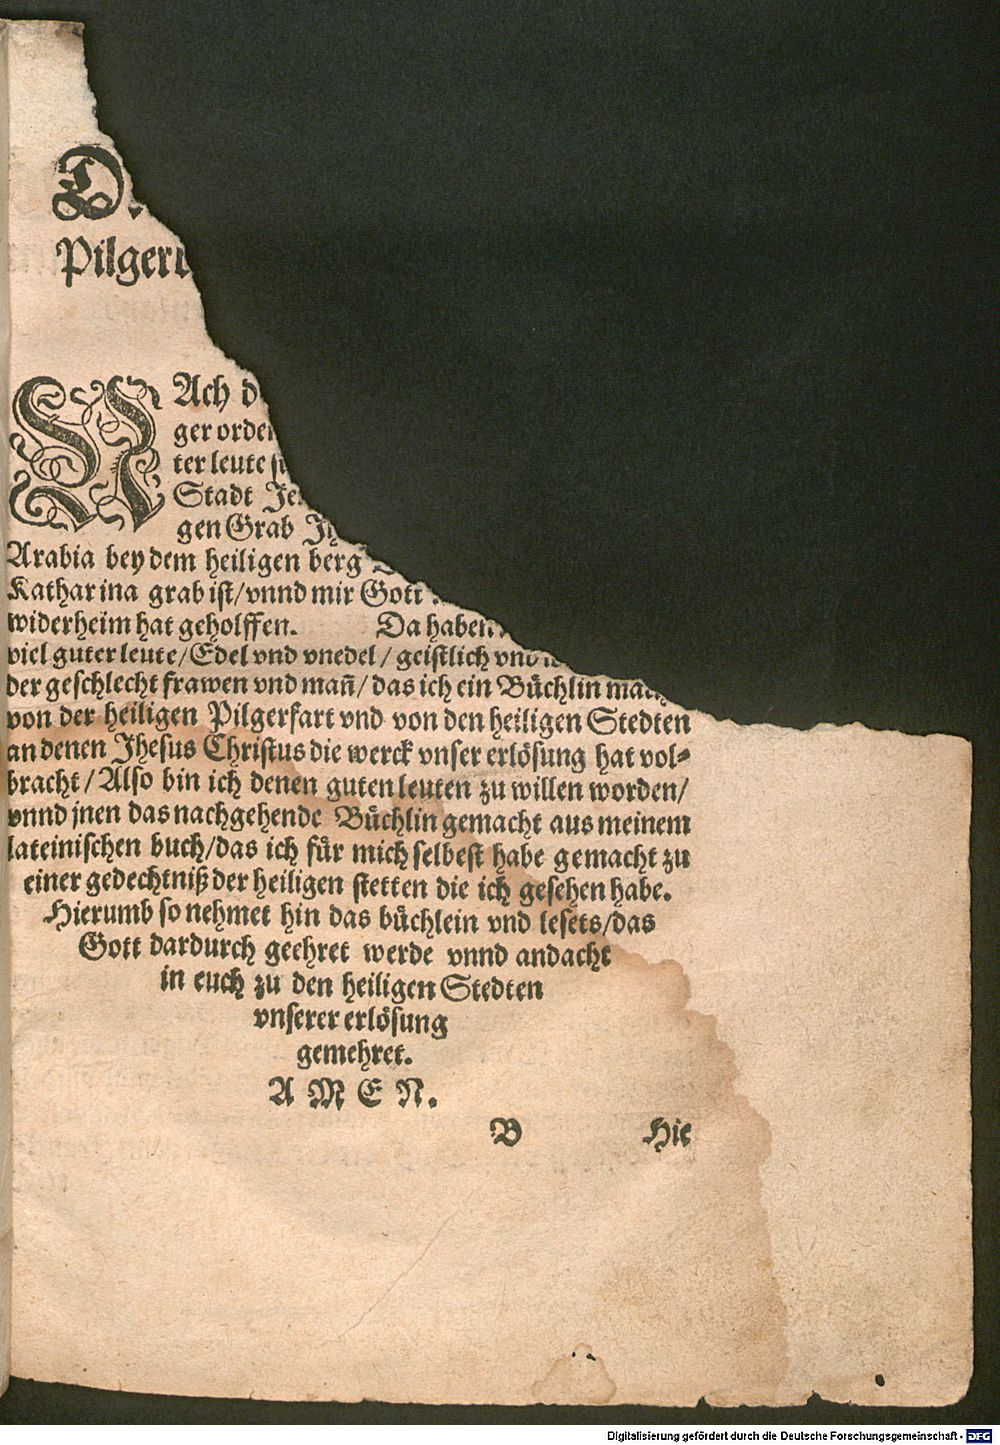 Pilger
NAch
ger orden
ter leute
Stadt
gen Grab
Arabia bey dem heiligen berg
Katharina grab ist/vnnd mir Gott
widerheim hat geholffen. Da haben
viel guter leute/Edel vnd vnedel/geistlich vnd
der geschlecht frawen vnd mañ/das ich ein Büchlin
von der heiligen Pilgerfart vnd von den heiligen Stedten
an denen Jhesus Christus die werck vnser erlösung hat vol-
bracht/Also bin ich denen guten leuten zu willen worden/
vnnd jnen das nachgehende Büchlin gemacht aus meinem
lateinischen buch/das ich für mich selbest habe gemacht zu
einer gedechtniß der heiligen stetten die ich gesehen habe.
Hierumb so nehmet hin das büchlein vnd lesets/das
Gott dardurch geehret werde vnnd andacht
in euch zu den heiligen Stedten
vnserer erlösung
gemehret.
A M E N.
B Hie
Digitalisierung gefördert durch die Deutsche Forschungsgemeinschaft - DFG